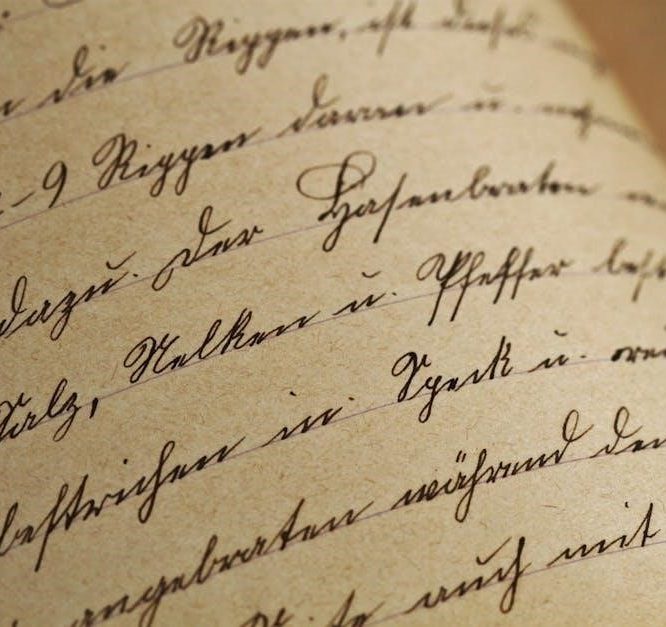 die Rippen, ist dieses
-9 Rippen daran u.
dazu. Der Hasenbraten
Salz, Nelken u. Pfeffer
bestrichen in Speck u.
angebraten während der
auch mit